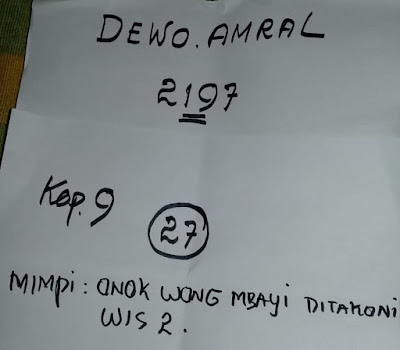 DEWO. AMRAL
2197
Kep. 9
27
MIMPi : ONOK WONG MBAYi DITAKONi
WIS 2.